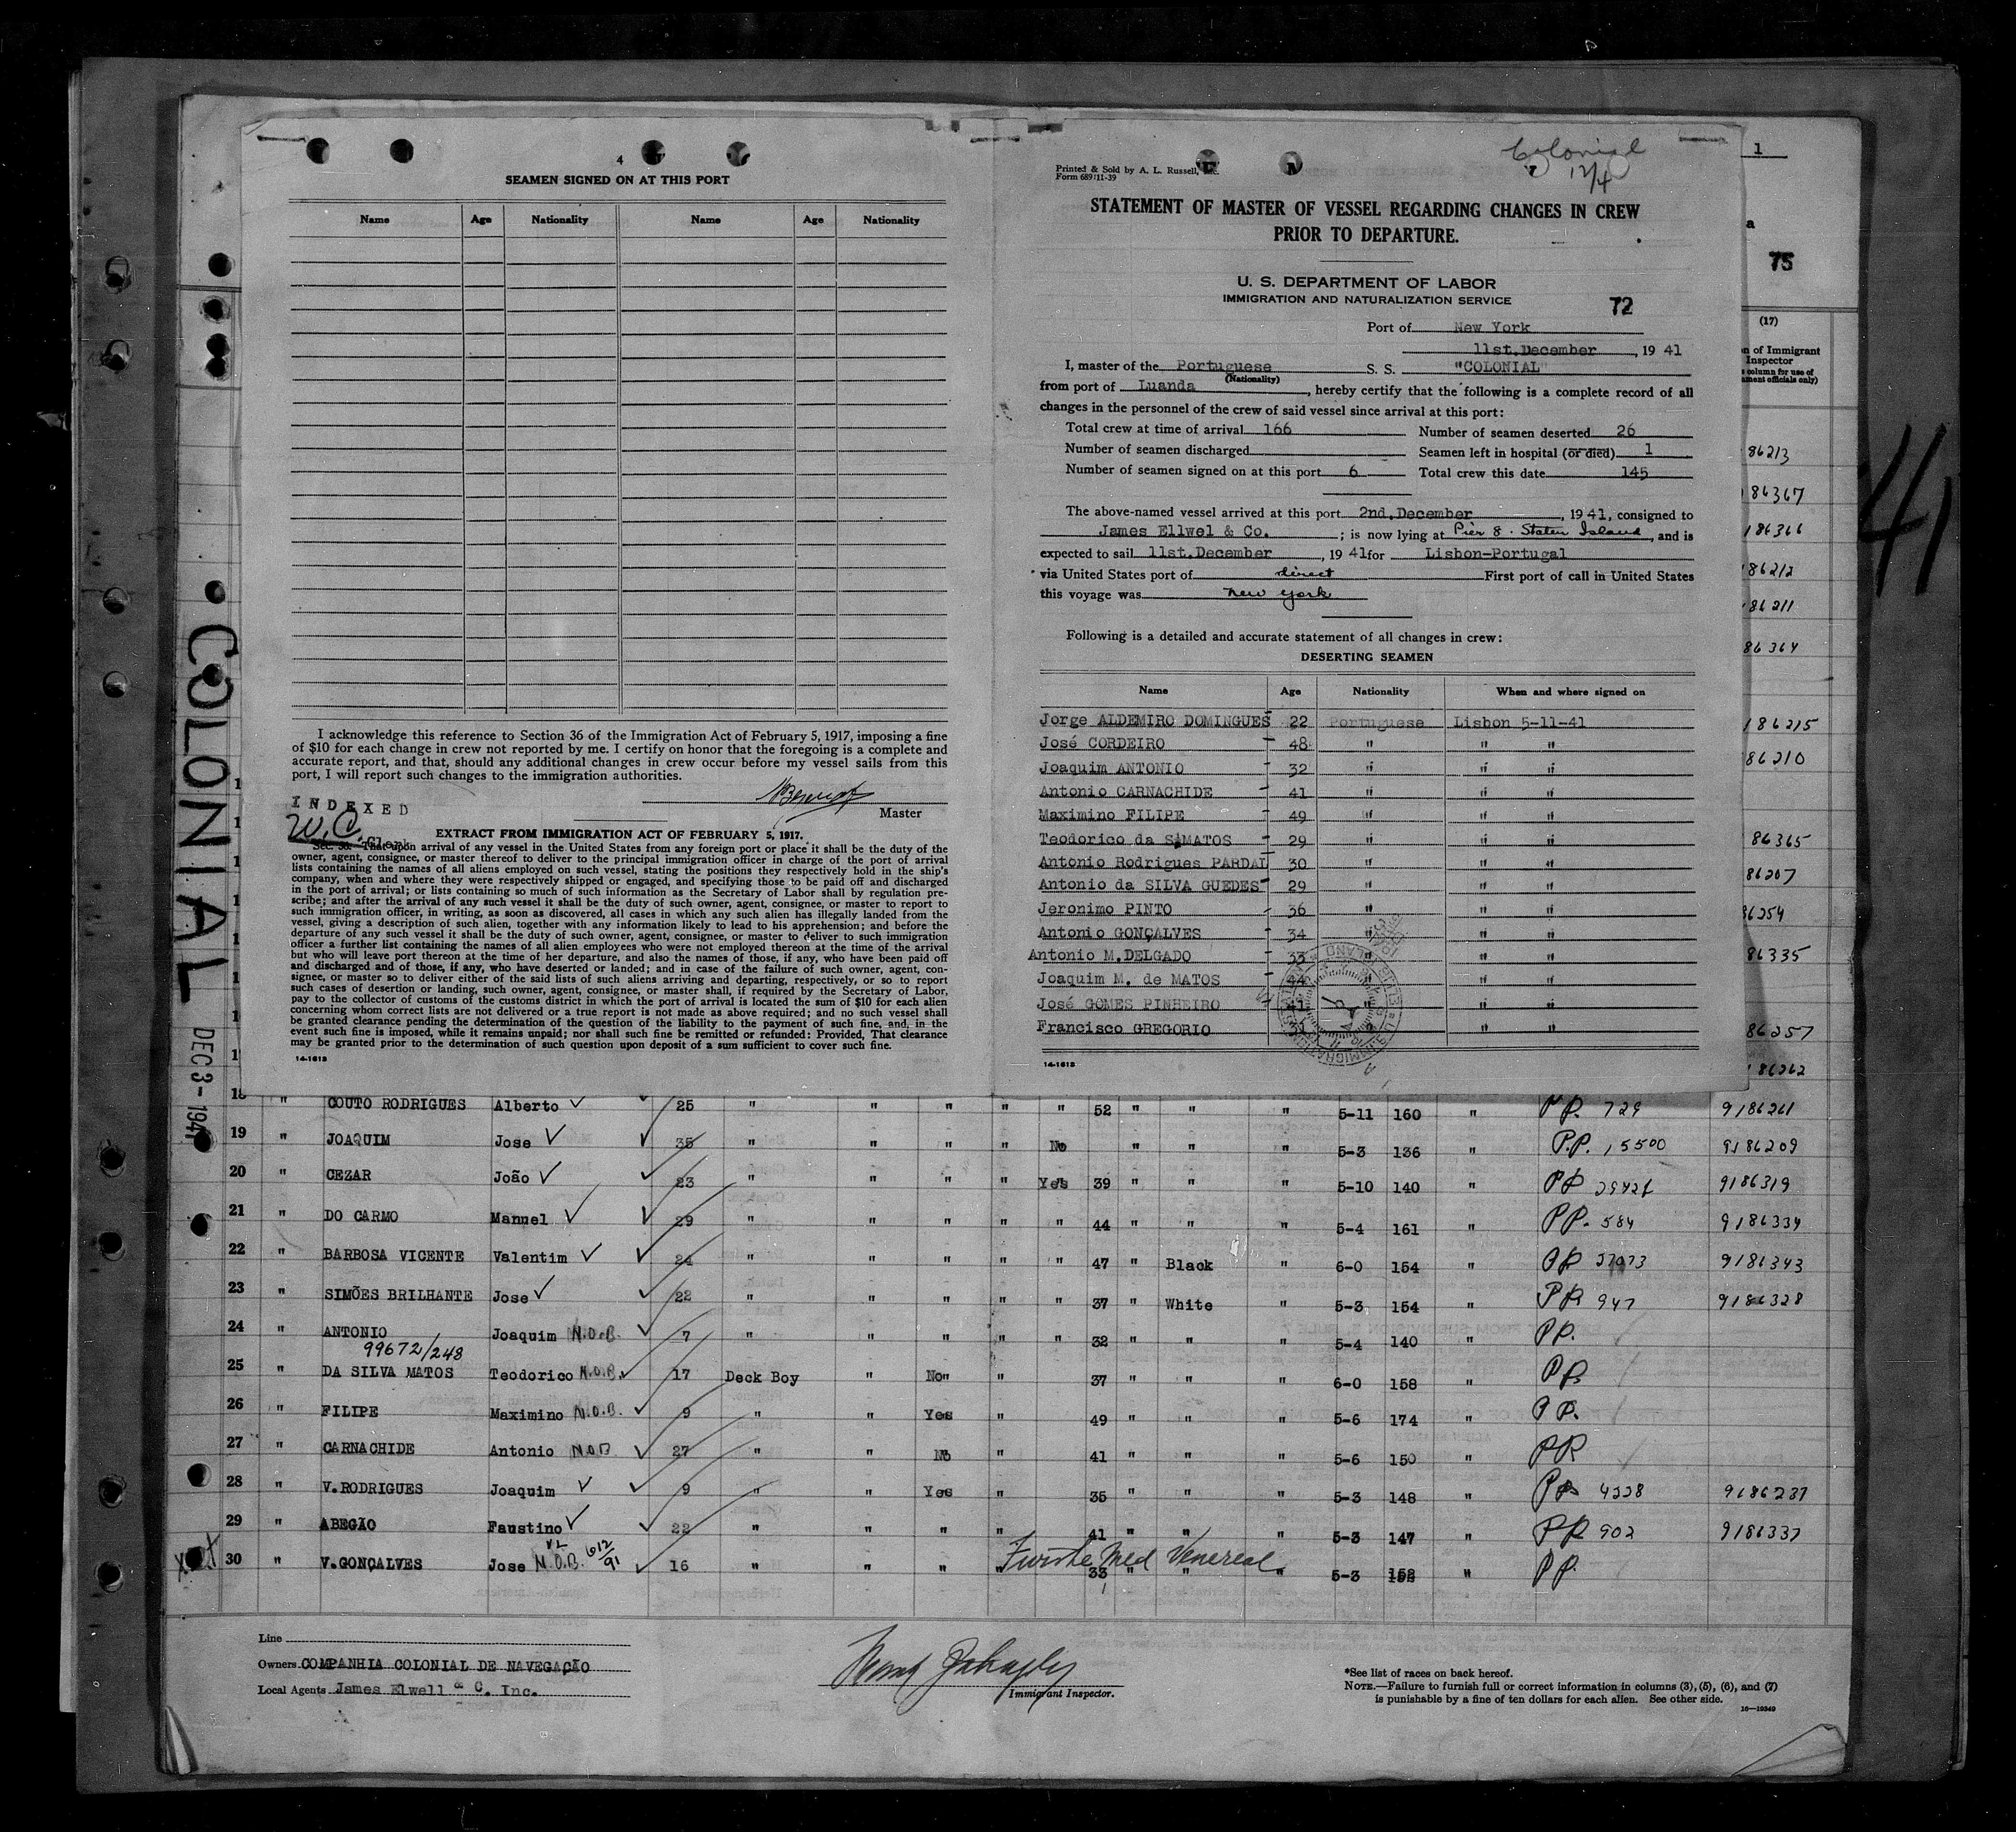 4
SEAMEN SIGNED ON AT THIS PORT
Name Age Nationality Name Age Nationality
I acknowledge this reference to Section 36 of the Immigration Act of February 5, 1917, imposing a fine
of $10 for each change in crew not reported by me. I certify on honor that the foregoing is a complete and
accurate report, and that, should any additional changes in crew occur before my vessel sails from this
port, I will report such changes to the immigration authorities.
Master
INDEXED
W.C.
Clerk
EXTRACT FROM IMMIGRATION ACT OF FEBRUARY 5, 1917.
Sec. 36. That upon arrival of any vessel in the United States from any foreign port or place it shall be the duty of the
owner, agent, consignee, or master thereof to deliver to the principal immigration officer in charge of the port of arrival
lists containing the names of all aliens employed on such vessel, stating the positions they respectively hold in the ship's
company, when and where they were respectively shipped or engaged, and specifying those to be paid off and discharged
in the port of arrival; or lists containing so much of such information as the Secretary of Labor shall by regulation pre-
scribe; and after the arrival of any such vessel it shall be the duty of such owner, agent, consignee, or master to report to
such immigration officer, in writing, as soon as discovered, all cases in which any such alien has illegally landed from the
vessel, giving a description of such alien, together with any information likely to lead to his apprehension; and before the
departure of any such vessel it shall be the duty of such owner, agent, consignee, or master to deliver to such immigration
officer a further list containing the names of all alien employees who were not employed thereon at the time of the arrival
but who will leave port thereon at the time of her departure, and also the names of those, if any, who have been paid off
and discharged and of those, if any, who have deserted or landed; and in case of the failure of such owner, agent, con-
signee, or master so to deliver either of the said lists of such aliens arriving and departing, respectively, or so to report
such cases of desertion or landing, such owner, agent, consignee, or master shall, if required by the Secretary of Labor,
pay to the collector of customs of the customs district in which the port of arrival is located the sum of $10 for each alien
concerning whom correct lists are not delivered or a true report is not made as above required; and no such vessel shall
be granted clearance pending the determination of the question of the liability to the payment of such fine, and, in the
event such fine is imposed, while it remains unpaid; nor shall such fine be remitted or refunded: Provided, That clearance
may be granted prior to the determination of such question upon deposit of a sum sufficient to cover such fine.
14-1613
Printed & Sold by A. L. Russell, Inc.
Form 689 11-39
Colonial
12/4
STATEMENT OF MASTER OF VESSEL REGARDING CHANGES IN CREW
PRIOR TO DEPARTURE.
U. S. DEPARTMENT OF LABOR
IMMIGRATION AND NATURALIZATION SERVICE
72
Port of New York
11st.December, 19 41
I, master of the Portuguese S. S. "COLONIAL"
(Nationality)
from port of Luanda, hereby certify that the following is a complete record of all
changes in the personnel of the crew of said vessel since arrival at this port:
Total crew at time of arrival 166 Number of seamen deserted 26
Number of seamen discharged Seamen left in hospital (or died) 1
Number of seamen signed on at this port 6 Total crew this date 145
The above-named vessel arrived at this port 2nd.December, 19 41, consigned to
James Ellwel & Co. ; is now lying at Pier 8 - Staten Island, and is
expected to sail 11st.December, 19 41 for Lisbon-Portugal
via United States port of direct First port of call in United States
this voyage was New York
Following is a detailed and accurate statement of all changes in crew:
DESERTING SEAMEN
Name Age Nationality When and where signed on
Jorge ALDEMIRO DOMINGUES 22 Portuguese Lisbon 5-11-41
José CORDEIRO 48 " " "
Joaquim ANTONIO 32 " " "
Antonio CARNACHIDE 41 " " "
Maximino FILIPE 49 " " "
Teodorico da S.MATOS 29 " " "
Antonio Rodrigues PARDAL 30 " " "
Antonio da SILVA GUEDES 29 " " "
Jeronimo PINTO 36 " " "
Antonio GONÇALVES 34 " " "
Antonio M.DELGADO 33 " " "
Joaquim M. de MATOS 44 " " "
José GOMES PINHEIRO 41 " " "
Francisco GREGORIO " " "
14-1613
1
a
75
(17)
n of Immigrant
Inspector
column for use of
ament officials only)
86213
86367
186366
86212
86211
86364
186215
86210
86365
86207
86254
86335
86257
86262
41
COLONIAL
DEC 3-1941
18 " COUTO RODRIGUES Alberto 25 " " " " " 52 " " " 5-11 160 " PP. 729 9186261
19 " JOAQUIM Jose 35 " " " " No " " " 5-3 136 " P.P. 15500 9186209
20 " CEZAR João 23 " " " " Yes 39 " " " 5-10 140 " PP 9186319
21 " DO CARMO Manuel 29 " " " " " 44 " " " 5-4 161 " PP. 584 9186334
22 " BARBOSA VICENTE Valentim 24 " " " " " 47 " Black " 6-0 154 " PP 9186343
23 " SIMÕES BRILHANTE Jose 22 " " " " " 37 " White " 5-3 154 " PP 947 9186328
24 " ANTONIO Joaquim N.O.B. 7 " " " " " 32 " " " 5-4 140 " PP.
99672/248
25 " DA SILVA MATOS Teodorico N.O.B. 17 Deck Boy " No " 37 " " " 6-0 158 " PP
26 " FILIPE Maximino N.O.B. 9 " " Yes " 49 " " " 5-6 174 " PP.
27 " CARNACHIDE Antonio N.O.B 27 " " No " 41 " " " 5-6 150 " PP
28 " V.RODRIGUES Joaquim 9 " " Yes " 35 " " " 5-3 148 " PP 4228 9186237
29 " ABEGÃO Faustino 22 " " " " 41 " " " 5-3 147 " PP 902 9186337
30 " V.GONÇALVES Jose N.O.B. 612/91 16 " " " " 33 " " " 5-3 " PP.
Med Venereal
Line
Owners COMPANHIA COLONIAL DE NAVEGAÇÃO
Local Agents James Elwell & C. Inc.
Immigrant Inspector.
*See list of races on back hereof.
NOTE.—Failure to furnish full or correct information in columns (3), (5), (6), and (7)
is punishable by a fine of ten dollars for each alien. See other side.
16—19349